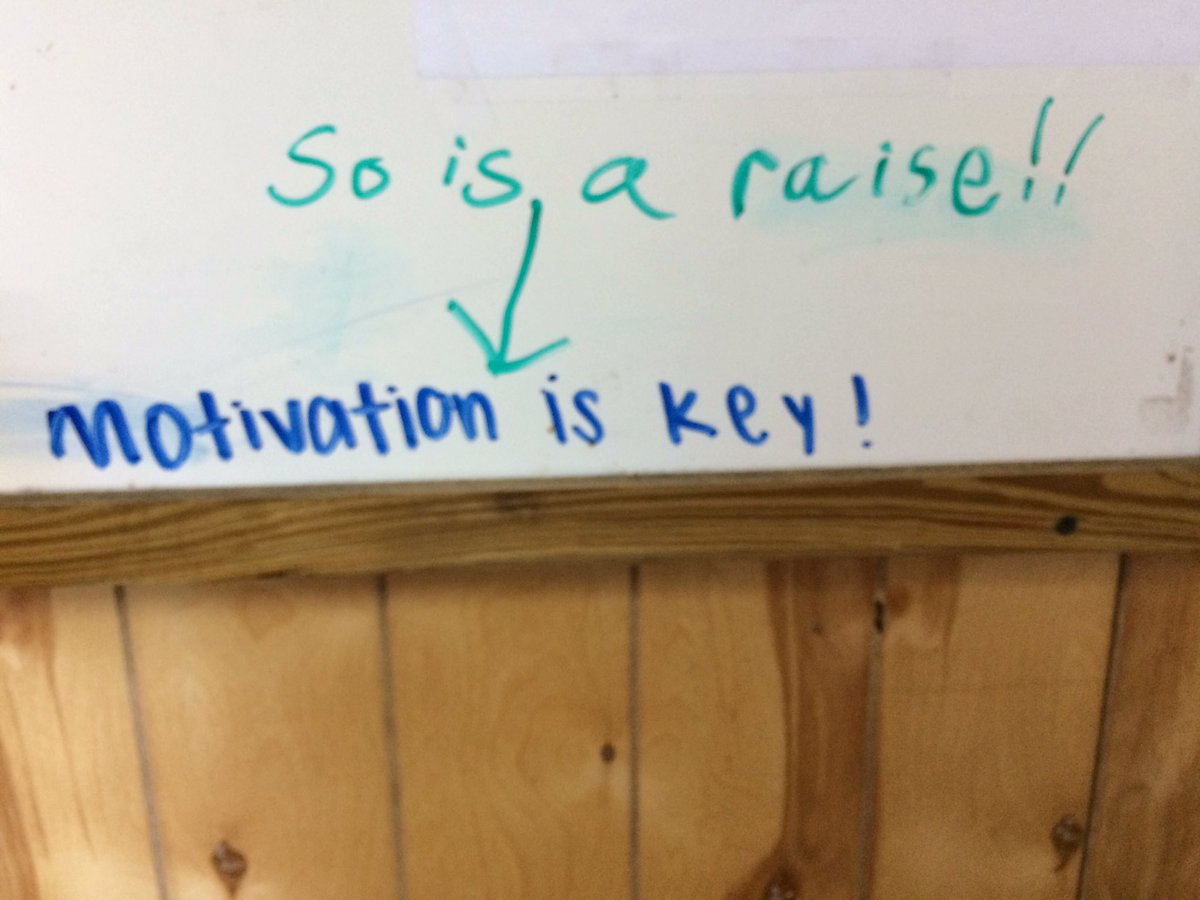 So is a raise!!
Motivation is key!